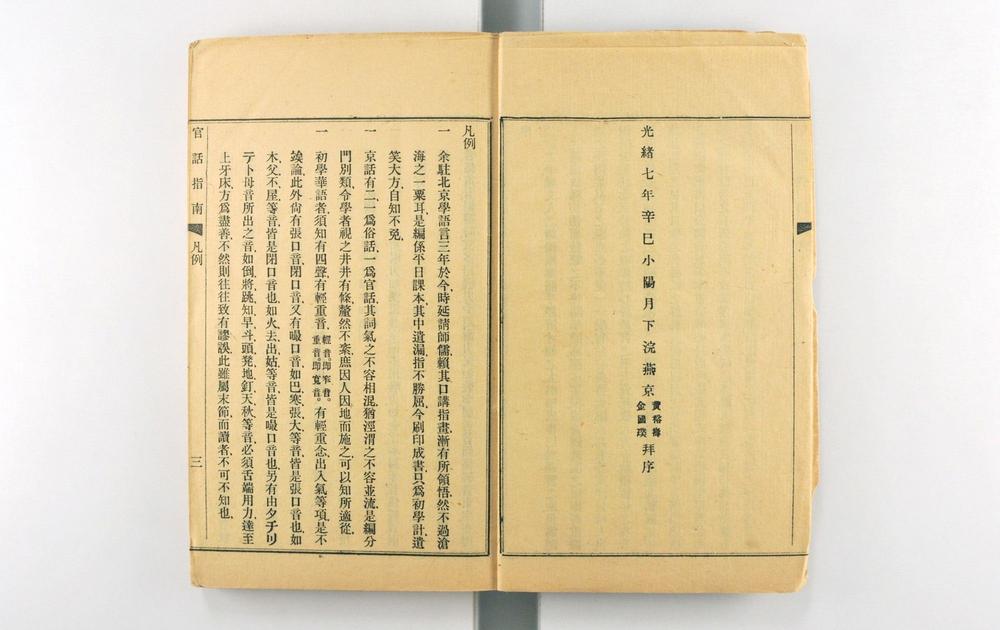 光緒七年辛巳小陽月下浣燕京黃裕壽金國璞拜序
凡例
一 余駐北京學語言三年於今時延請師儒賴其口講指畫漸有所領悟然不過滄
海之一粟耳是編係平日課本其中遺漏指不勝屈今刷印成書只爲初學計遺
笑大方自知不免
一 京話有二一爲俗話一爲官話其詞氣之不容相混猶涇渭之不容並流是編分
門別類令學者視之井井有條釐然不紊庶因人因地而施之可以知所適從
一 初學華語者須知有四聲有輕重音輕音即窄音。重音即寬音。有輕重念出入氣等項是不
竢論此外尙有張口音閉口音又有嘬口音如巴寒張大等音皆是張口音也如
木父不屋等音皆是閉口音也如火去出姑等音皆是嘬口音也另有由タチリ
テト母音所出之音如倒將跳知早斗頭凳地釘天秋等音必須舌端用力達至
上牙床方爲盡善不然則往往致有謬誤此雖屬末節而讀者不可不知也
官話指南
凡例
三